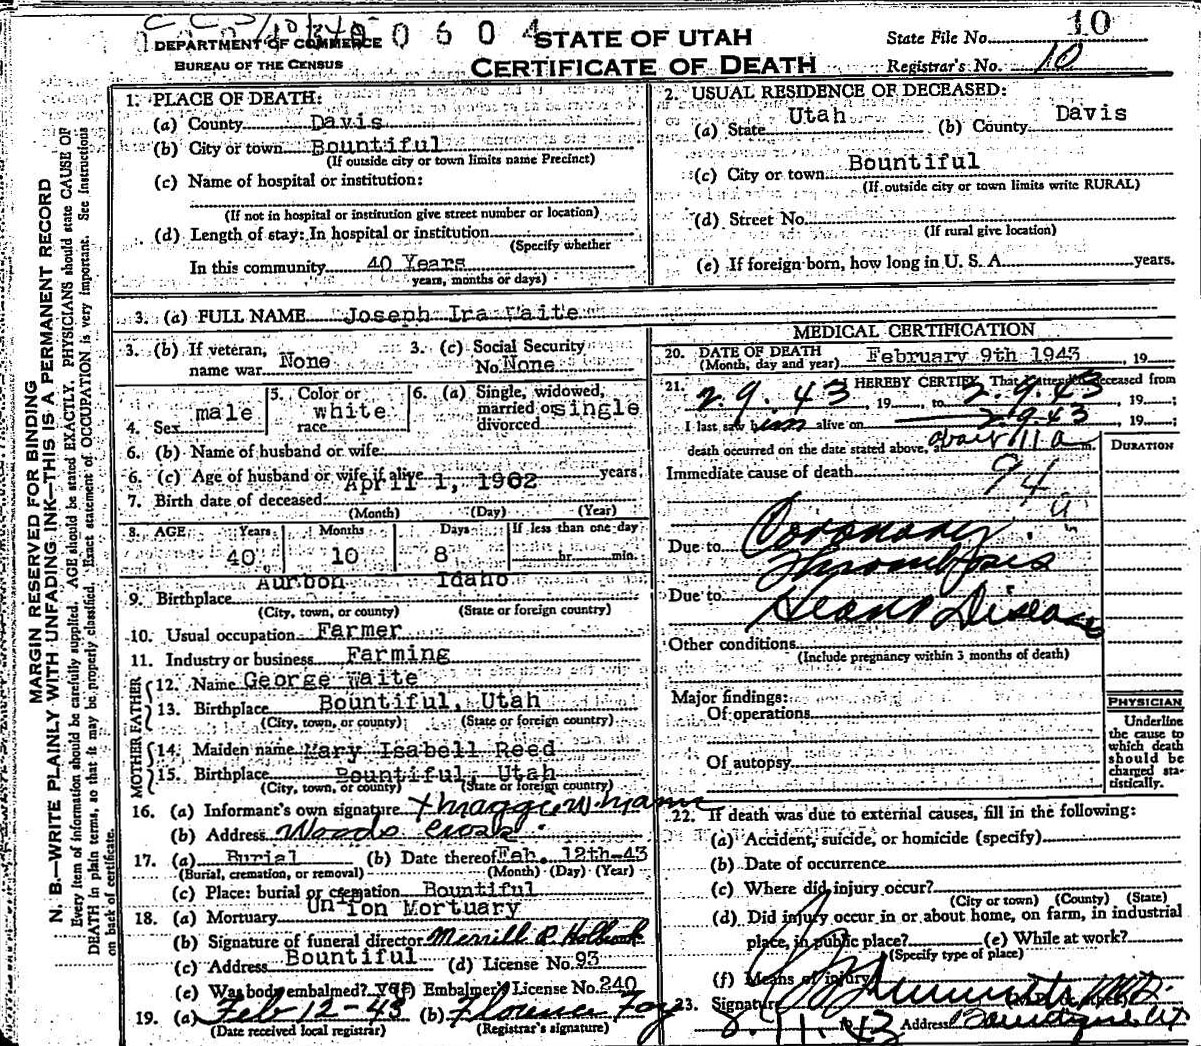 10
DEPARTMENT OF COMMERCE 0 6 0 4 STATE OF UTAH State File No.
BUREAU OF THE CENSUS CERTIFICATE OF DEATH Registrar's No. 10
MARGIN RESERVED FOR BINDING
N. B.—WRITE PLAINLY WITH UNFADING INK—THIS IS A PERMANENT RECORD
Every item of information should be carefully supplied. AGE should be stated EXACTLY. PHYSICIANS should state CAUSE OF
DEATH in plain terms, so that it may be properly classified. Exact statement of OCCUPATION is very important. See instructions
on back of certificate.
1. PLACE OF DEATH:
(a) County Davis
(b) City or town Bountiful
(If outside city or town limits name Precinct)
(c) Name of hospital or institution:
(If not in hospital or institution give street number or location)
(d) Length of stay: In hospital or institution
(Specify whether
In this community 40 Years
years, months or days)
2. USUAL RESIDENCE OF DECEASED:
(a) State Utah (b) County Davis
(c) City or town Bountiful
(If outside city or town limits write RURAL)
(d) Street No.
(If rural give location)
(e) If foreign born, how long in U. S. A. years.
3. (a) FULL NAME Joseph Ira Waite
3. (b) If veteran, name war None 3. (c) Social Security No. None
4. Sex male 5. Color or race white 6. (a) Single, widowed, married or divorced single
6. (b) Name of husband or wife
6. (c) Age of husband or wife if alive years.
7. Birth date of deceased April 1, 1902
(Month) (Day) (Year)
8. AGE Years Months Days If less than one day
40 10 8 hr. min.
9. Birthplace Idaho
(City, town, or county) (State or foreign country)
10. Usual occupation Farmer
11. Industry or business Farming
FATHER
12. Name George Waite
13. Birthplace Bountiful, Utah
(City, town, or county) (State or foreign country)
MOTHER
14. Maiden name Mary Isabell Reed
15. Birthplace Bountiful, Utah
(City, town, or county) (State or foreign country)
16. (a) Informant's own signature
(b) Address Woods Cross
17. (a) Burial (b) Date thereof Feb. 12th-43
(Burial, cremation, or removal) (Month) (Day) (Year)
(c) Place: burial or cremation Bountiful
18. (a) Mortuary Union Mortuary
(b) Signature of funeral director Merrill R. Holbrook
(c) Address Bountiful (d) License No. 93
(e) Was body embalmed? yes Embalmer's License No. 240
19. (a) Feb 12-43 (b) Florence Foy
(Date received local registrar) (Registrar's signature)
MEDICAL CERTIFICATION
20. DATE OF DEATH February 9th 1943, 19
(Month, day and year)
21. I HEREBY CERTIFY, That I attended deceased from
2.9.43, 19, to 2.9.43, 19;
I last saw him alive on 2.9.43, 19;
death occurred on the date stated above, at about 11 a m. DURATION
Immediate cause of death 94
a
Due to Coronary
Thrombosis
Due to Heart Disease
Other conditions
(Include pregnancy within 3 months of death)
Major findings:
Of operations
Of autopsy
PHYSICIAN
Underline
the cause to
which death
should be
charged sta-
tistically.
22. If death was due to external causes, fill in the following:
(a) Accident, suicide, or homicide (specify)
(b) Date of occurrence
(c) Where did injury occur?
(City or town) (County) (State)
(d) Did injury occur in or about home, on farm, in industrial
place, in public place? (e) While at work?
(Specify type of place)
(f) Means of injury
23. Signature M.D.
11.43 Address